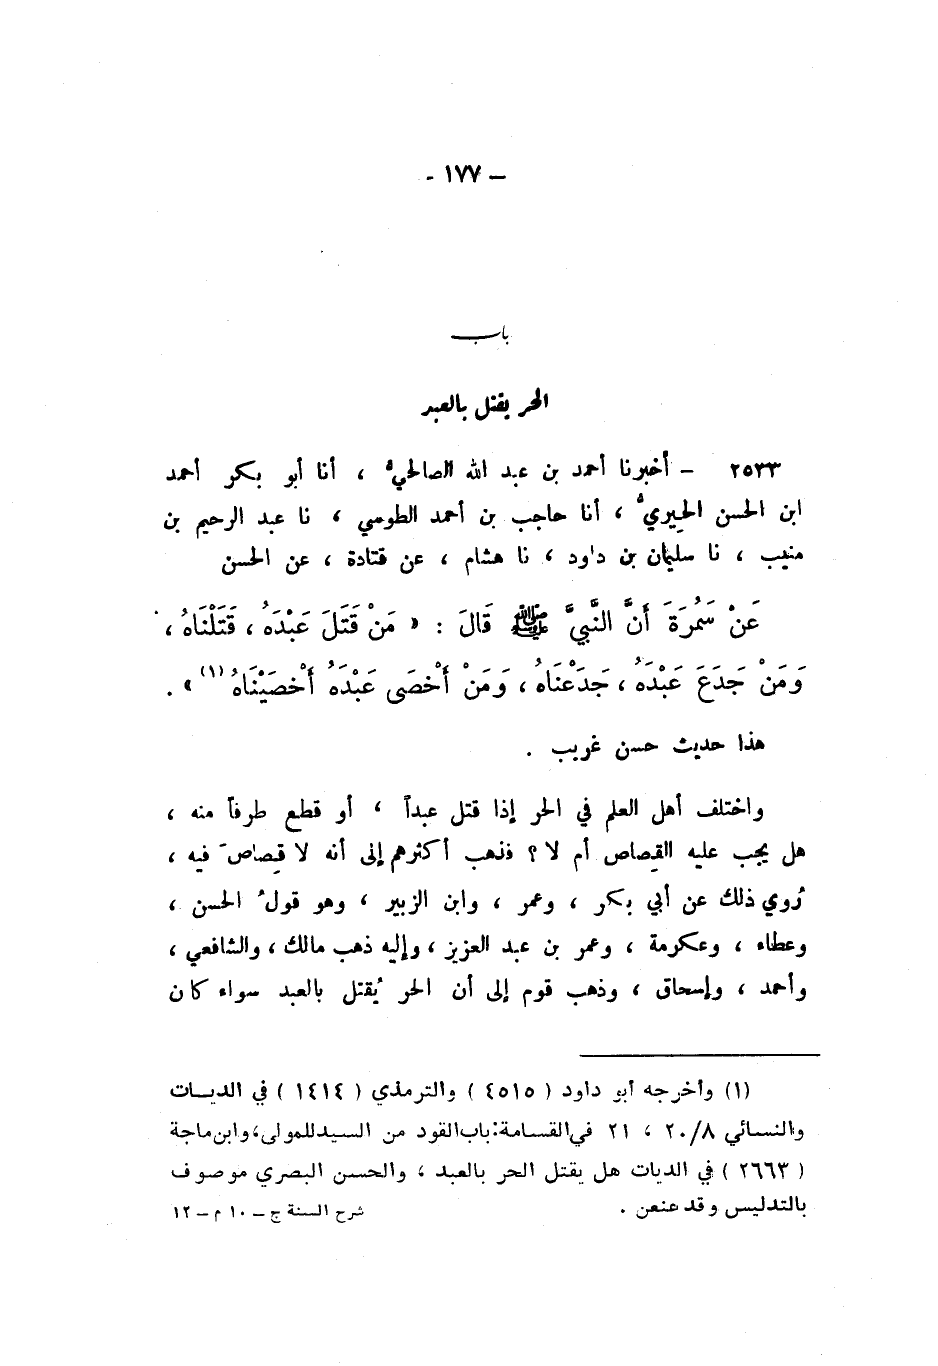 – ١٧٧ -
باب
الحر يقتل بالعبد
٢٥٣٣ – أخبرنا أحمد بن عبد الله الصالحيُّ ، أنا أبو بكر أحمد
ابن الحسن الحِيريُّ ، أنا حاجب بن أحمد الطوسي ، نا عبد الرحيم بن
منيب ، نا سليمان بن داود ، نا هشام ، عن قتادة ، عن الحسن
عَنْ سَمُرَةَ أَنَّ النَّبِيَّ ﷺ قَالَ : « مَنْ قَتَلَ عَبْدَهُ ، قَتَلْنَاهُ ،
وَمَنْ جَدَعَ عَبْدَهُ ، جَدَعْنَاهُ ، وَمَنْ أَخْصَى عَبْدَهُ أَخْصَيْنَاهُ (١) » .
هذا حديث حسن غريب .
واختلف أهل العلم في الحر إذا قتل عبداً ، أو قطع طرفاً منه ،
هل يجب عليه القِصاص أم لا ؟ فذهب أكثرهم إلى أنه لا قِصاصَ فيه ،
رُوي ذلك عن أبي بكر ، وعمر ، وابن الزبير ، وهو قولُ الحسن ،
وعطاء ، وعكرمة ، وعمر بن عبد العزيز ، وإليه ذهب مالك ، والشافعي ،
وأحمد ، وإسحاق ، وذهب قوم إلى أن الحر يُقتل بالعبد سواء كان
(١) وأخرجه أبو داود ( ٤٥١٥ ) والترمذي ( ١٤١٤ ) في الديات
والنسائي ٢٠/٨ ، ٢١ في القسامة: باب القود من السيد للمولى، وابن ماجة
( ٢٦٦٣ ) في الديات هل يقتل الحر بالعبد ، والحسن البصري موصوف
بالتدليس وقد عنعن .
شرح السنة ج – ١٠ م – ١٢